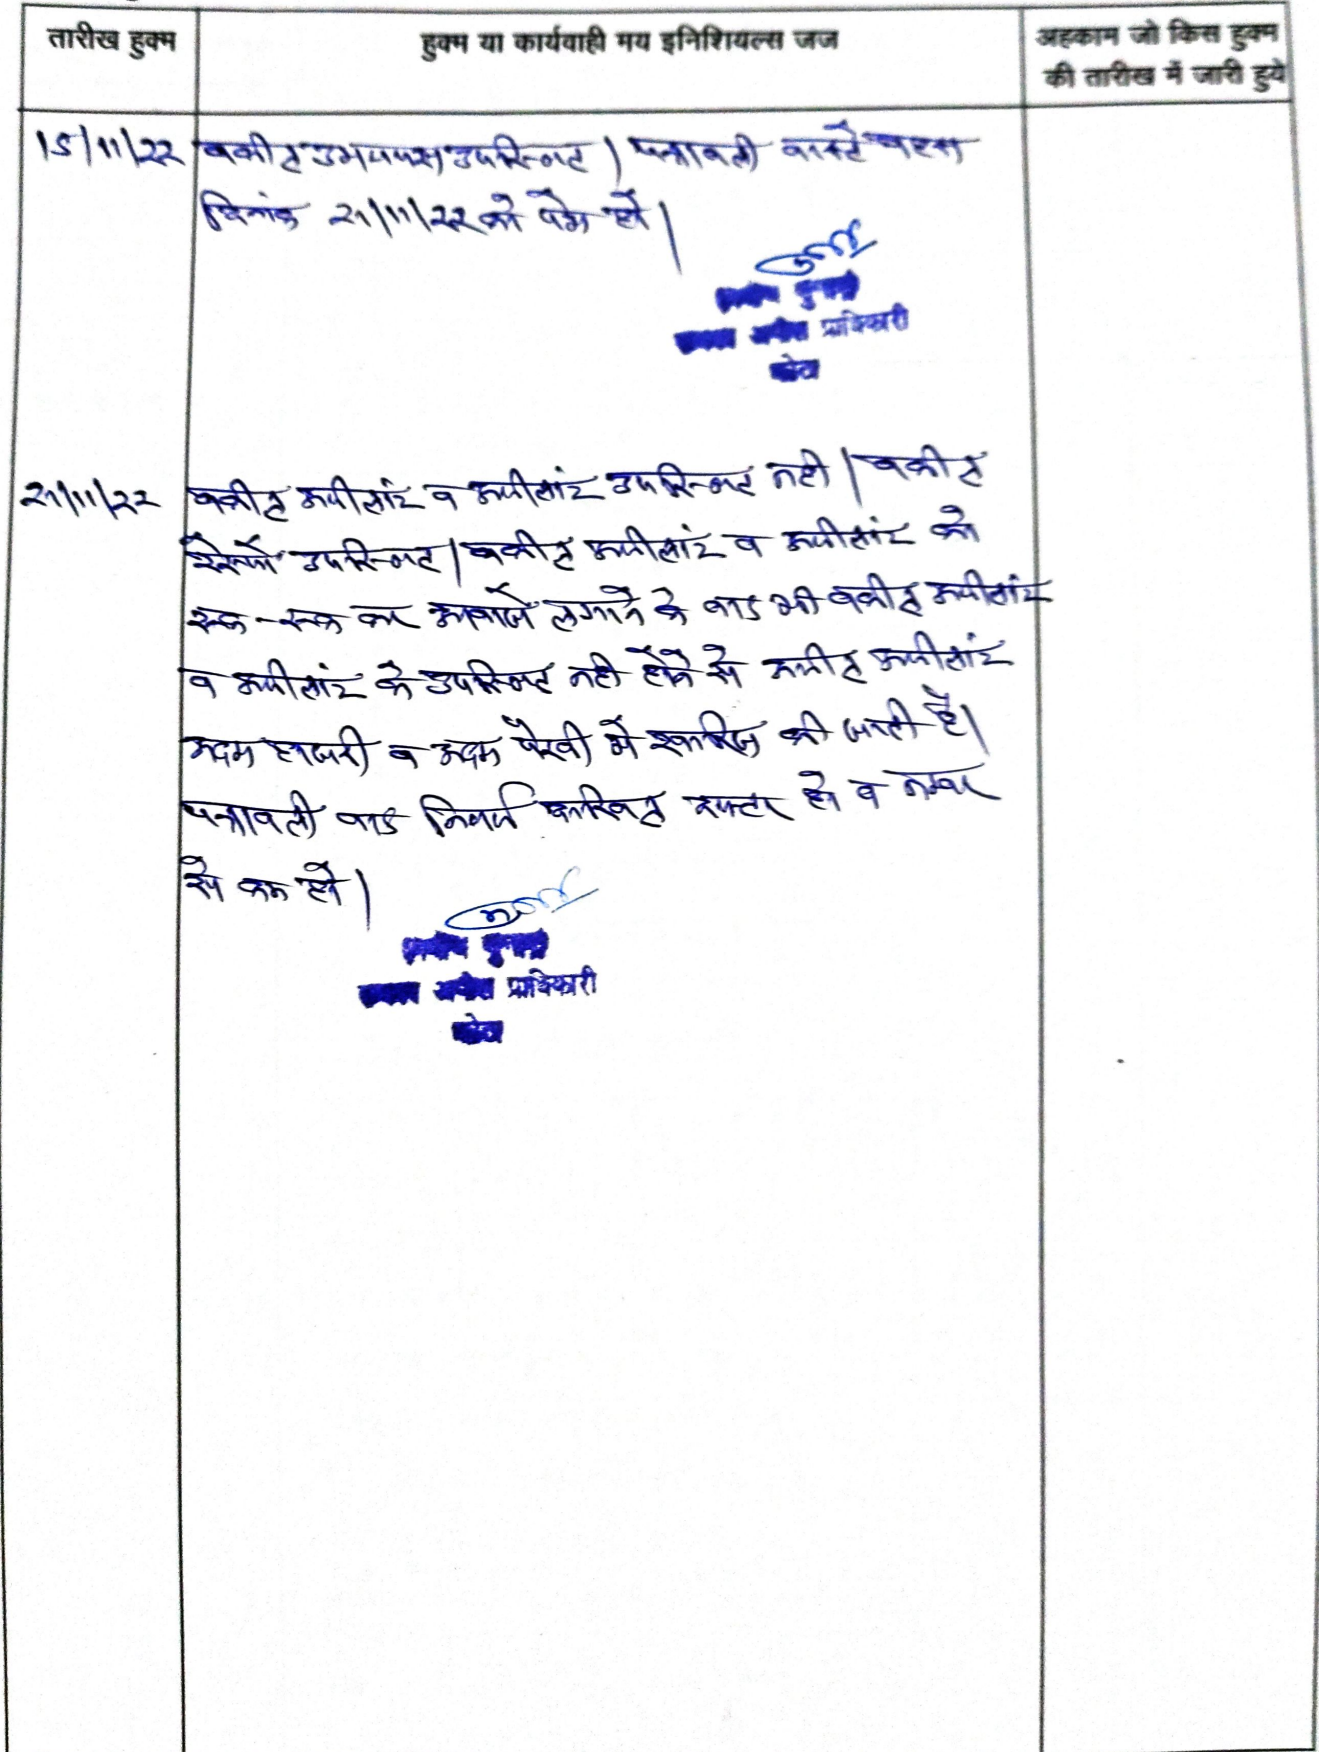 तारीख हुक्म
हुक्म या कार्यवाही मय इनिशियल्स जज
अहकाम जो किस हुक्म
की तारीख में जारी हुये
15/11/22 वकील उभयपक्ष उपस्थित । पत्रावली वास्ते बहस
दिनांक 21/11/22 को पेश हो ।
प्राधिकारी
21/11/22 वकील अपीलांट व अपीलांट उपस्थित नही । वकील
रेस्पो उपस्थित । वकील अपीलांट व अपीलांट को
रुक-रुक कर आवाजे लगाने के बाद भी वकील अपीलांट
व अपीलांट के उपस्थित नही होने से अपील अपीलांट
अदम हाजरी व अदम पैरवी में खारिज की जाती है।
पत्रावली बाद दाखिल दफ्तर हो व नम्बर
से कम हो ।
प्राधिकारी